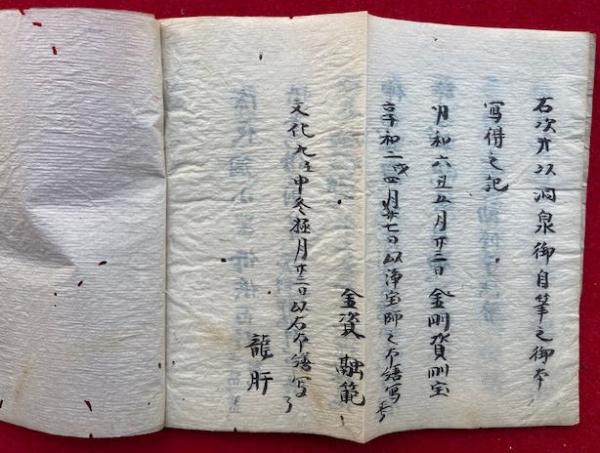 右次才以洞泉御自筆之御本
寫得之記
明和六丑五月廿三日 金剛資剛宝
享和二戌四月廿七日以浄宝師之本繕寫畢
金資 融範
文化九壬申冬極月廿三日以右本繕写了
龍肝